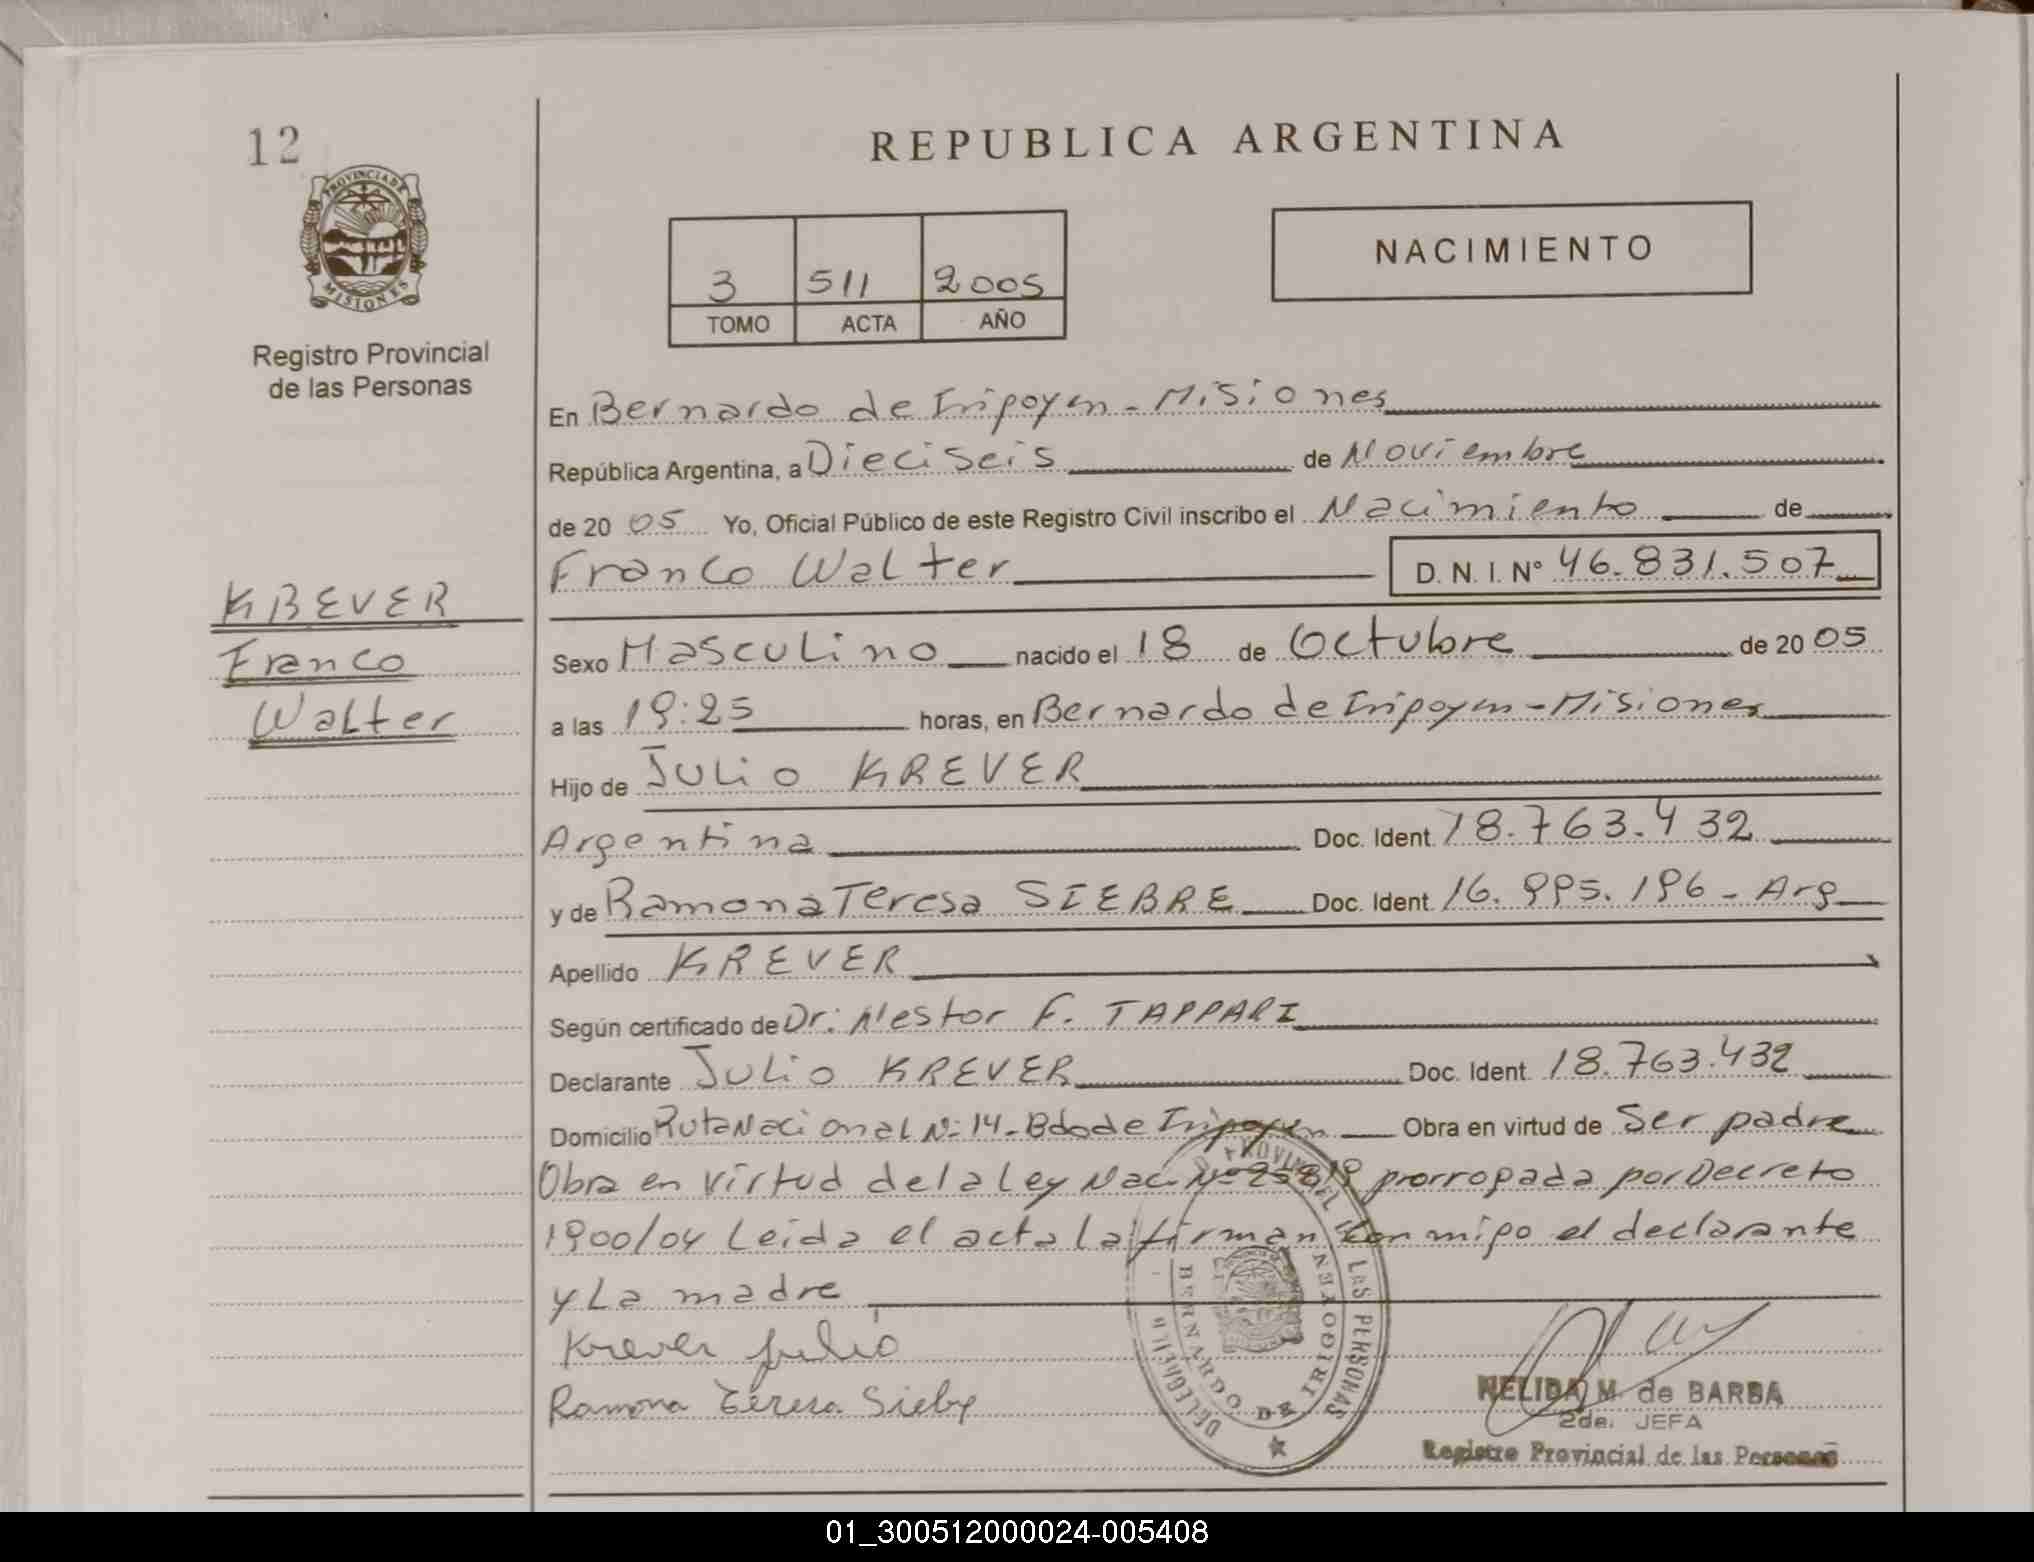 12
REPUBLICA ARGENTINA
PROVINCIA DE
MISIONES
Registro Provincial
de las Personas
3 511 2005
TOMO ACTA AÑO
NACIMIENTO
En Bernardo de Irigoyen - Misiones
República Argentina, a Dieciseis de Noviembre
de 20 05 Yo, Oficial Público de este Registro Civil inscribo el Nacimiento de
Franco Walter D. N. I. Nº 46.831.507
KREVER
Franco
Walter
Sexo Masculino nacido el 18 de Octubre de 20 05
a las 19:25 horas, en Bernardo de Irigoyen - Misiones
Hijo de Julio KREVER
Argentina Doc. Ident. 18.763.432
y de Ramona Teresa SIEBRE Doc. Ident. 16.995.196 - Arg
Apellido KREVER
Según certificado de Dr: Nestor F. TAPPARI
Declarante Julio KREVER Doc. Ident. 18.763.432
Domicilio Ruta Nacional Nº 14 - Bdo de Irigoyen Obra en virtud de Ser padre
Obra en virtud de la Ley Nac. Nº 25819 prorrogada por Decreto
1900/04 Leida el acta la firman conmigo el declarante
y La madre
Krever Julio
Ramona Teresa Siebre
LAS PERSONAS
BERNARDO DE IRIGOYEN
NELIDA M. de BARBA
2da. JEFA
Registro Provincial de las Personas
01_300512000024-005408